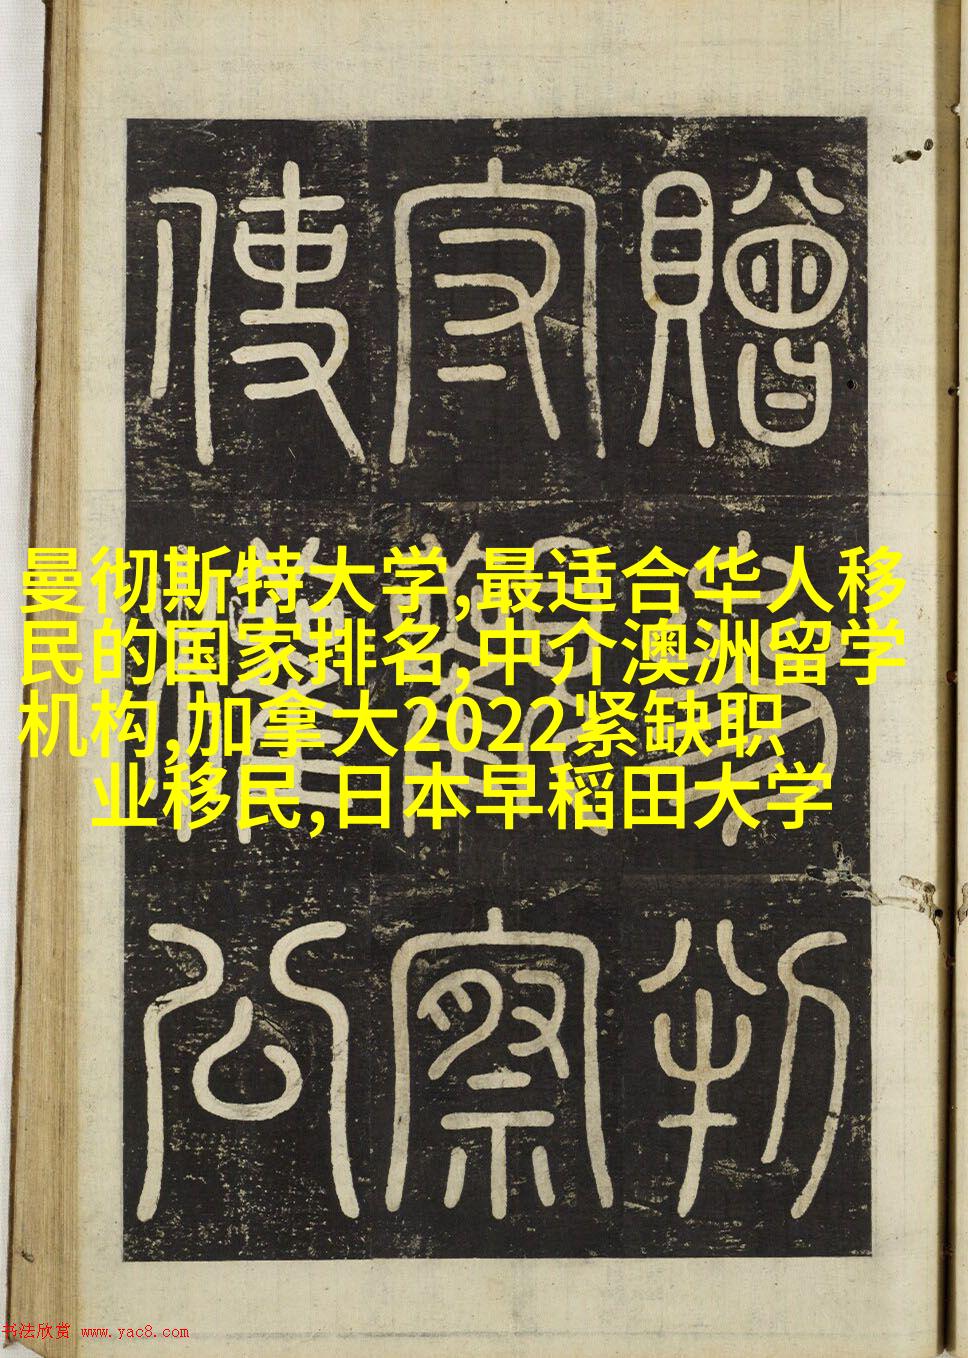 贈判
察
使公
曼彻斯特大学,最适合华人移
民的国家排名,中介澳洲留学
机构,加拿大2022紧缺职
业移民,日本早稻田大学
书法欣赏 www.yac8.com